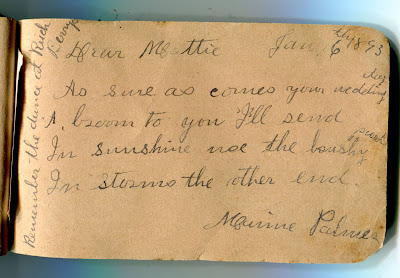 Dear Mattie Jan. 6 th 1893
As sure as comes your wedding day
A broom to you I'll send
In sunshine use the brushy part
In storms the other end.
Mannie Palmer
Remember the dance at Rich Berrys